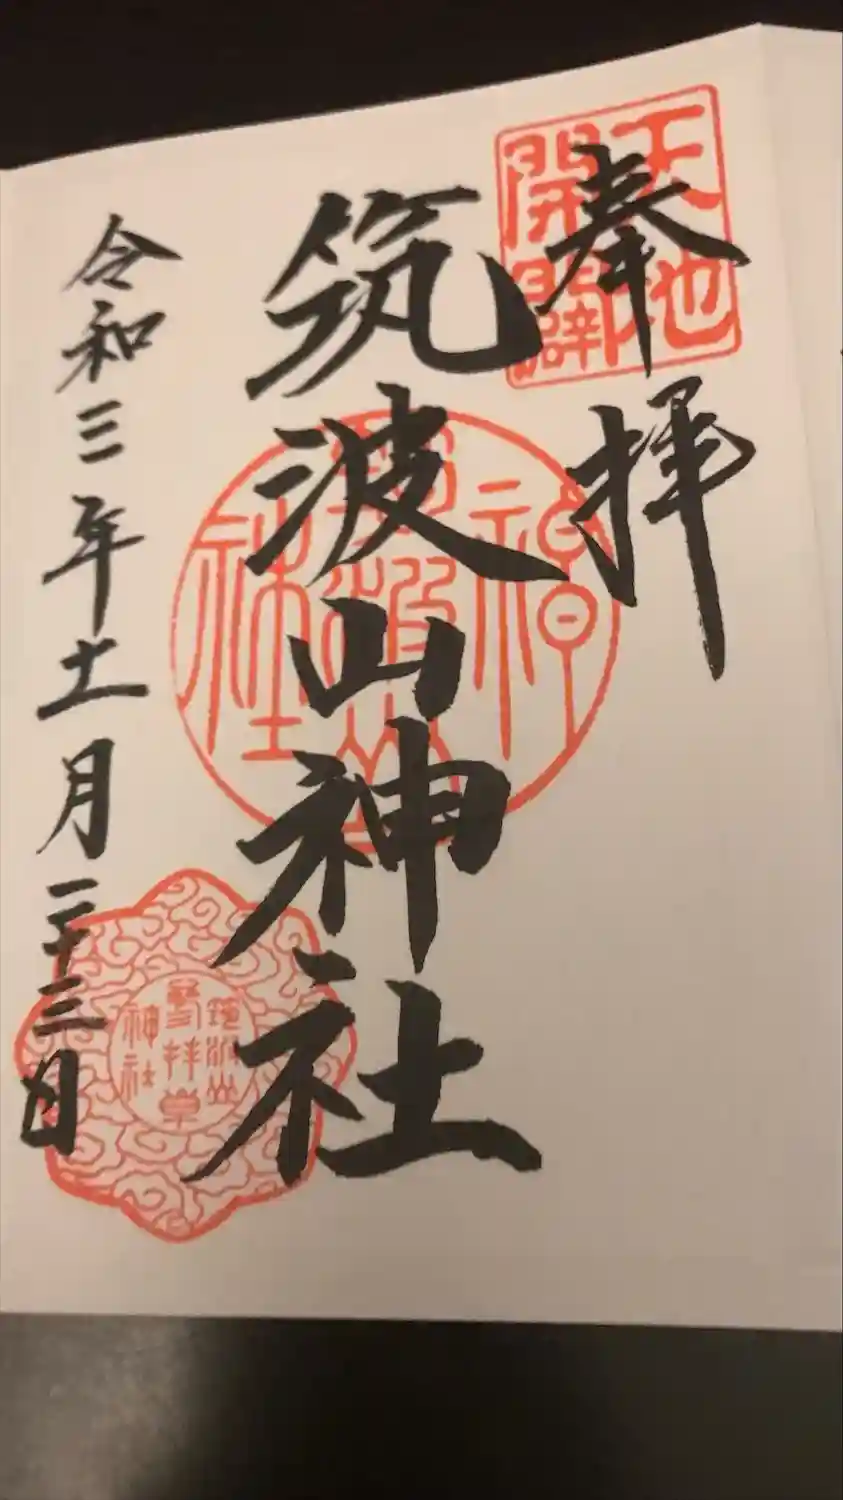 奉拝
天地
開闢
筑波山神社
筑波山
神社
令和三年十一月二十三日
筑波山
参拝章
神社